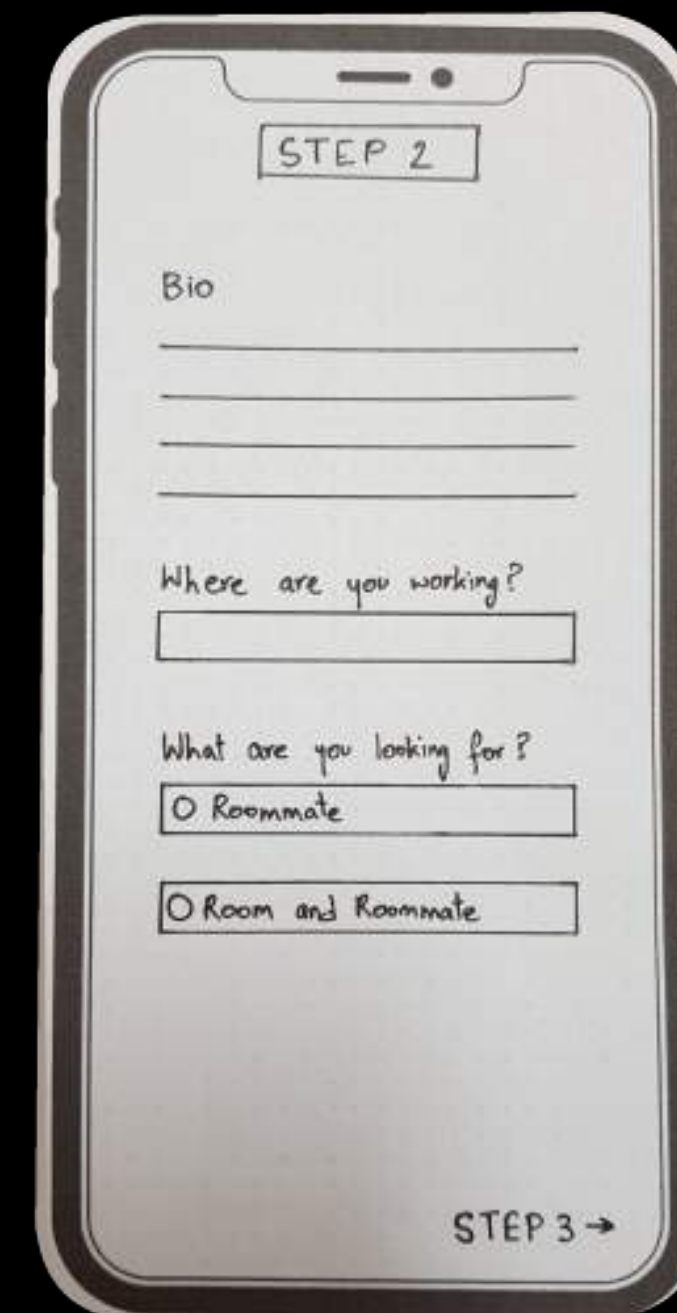 STEP 2
Bio
Where are you working?
What are you looking for?
O Roommate
O Room and Roommate
STEP 3 →